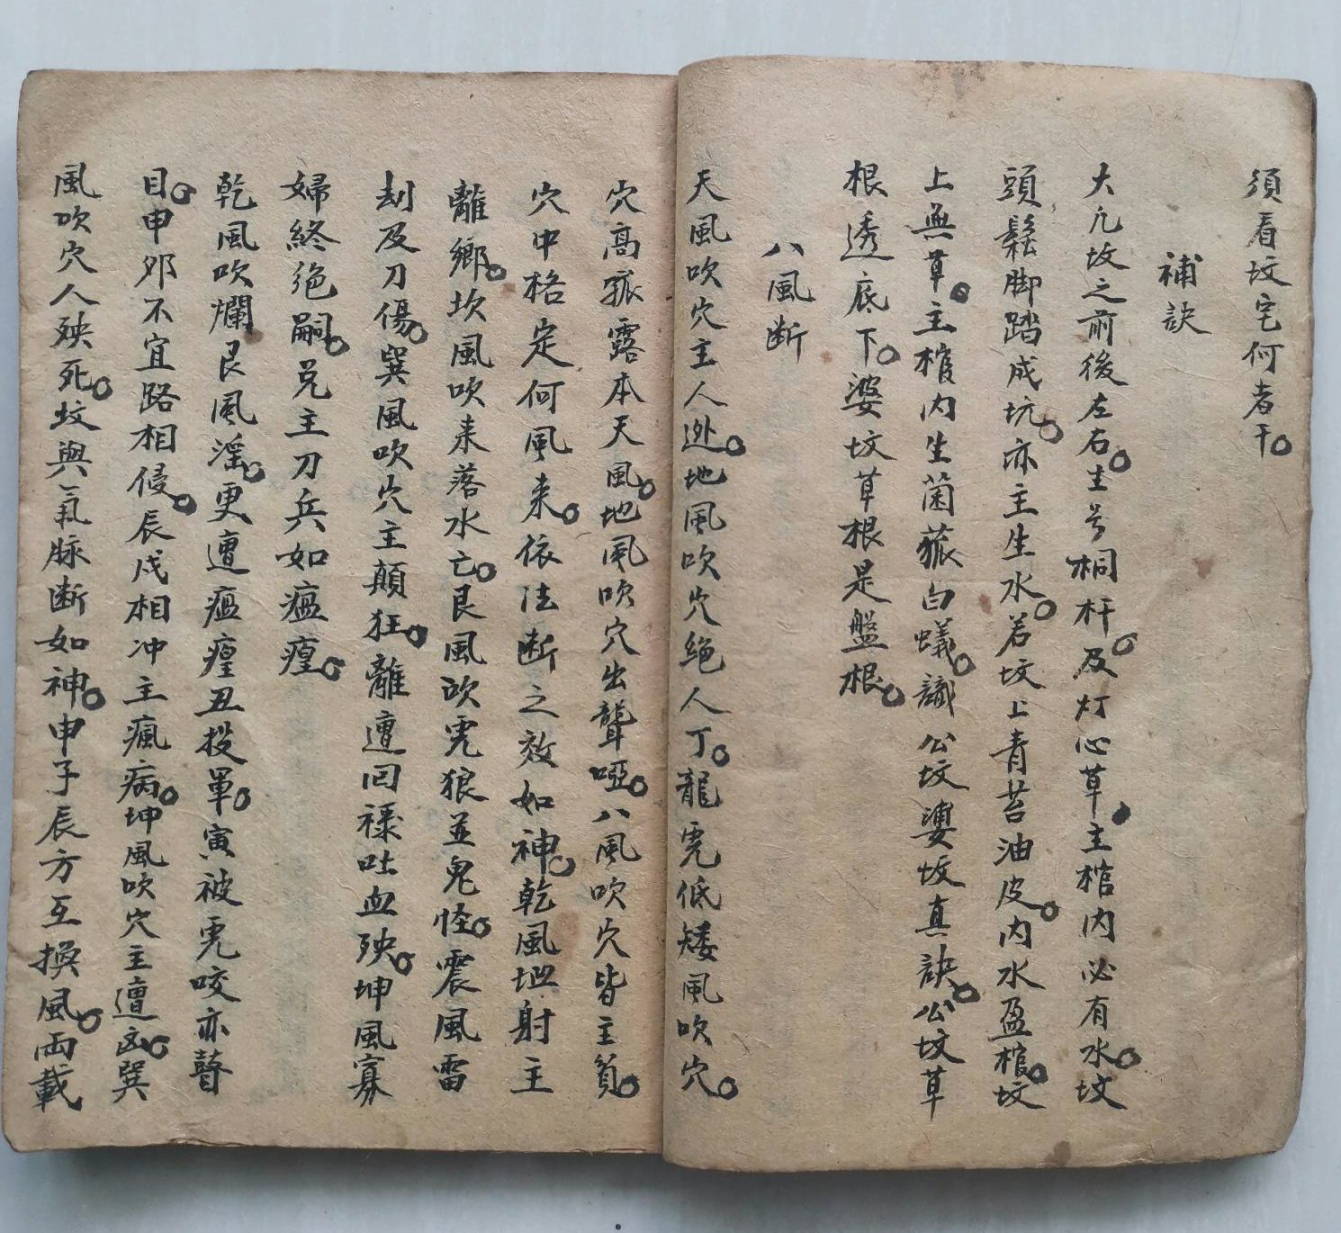 須看坟宅何者干。
補訣
大凡坟之前後左右。生号桐杆。及灯心草。主棺内必有水。坟
頭鬆脚踏成坑。亦主生水。若坟上青苔油皮。内水盈棺。坟
上無草。主棺内生菌菰白蟻。識公坟婆坟真訣。公坟草
根透底下。婆坟草根是盤根。
八風断
天風吹穴主人迯。地風吹穴絶人丁。龍虎低矮風吹穴。
穴高孤露本天風。地風吹穴出聾啞。八風吹穴皆主貧。
穴中格定何風来。依法断之效如神。乾風坳射主
離鄉。坎風吹来落水亡。艮風吹虎狼並鬼怪。震風雷
刼及刀傷。巽風吹穴主顛狂。離遭回祿吐血殃。坤風寡
婦終絶嗣。兑主刀兵如瘟㾮。
乾風吹爛艮風滛。更遭瘟㾮丑投軍。寅被虎咬亦瞽
目。申夘不宜路相侵。辰戌相冲主瘋病。坤風吹穴主遭凶。巽
風吹穴人殃死。坟與氣脉断如神。申子辰方互換風。両載